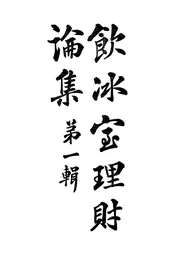 飲冰室理財
論集
第一輯